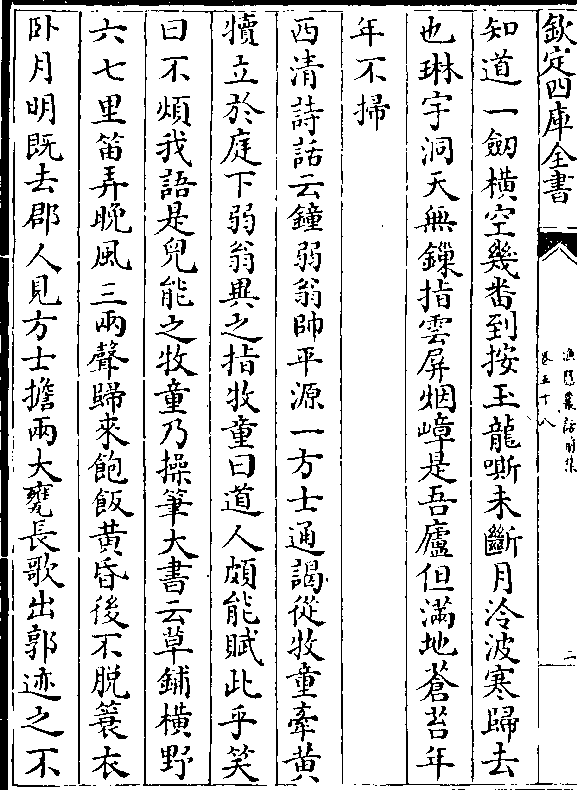 欽定四庫全書
漁隱叢話前集
卷五十八
二
知道一劒橫空幾番到按玉龍嘶未斷月冷波寒歸去
也琳宇洞天無鏁指雲屏烟嶂是吾廬但滿地蒼苔年
年不掃
西清詩話云鐘弱翁帥平源一方士通謁從牧童牽黄
犢立於庭下弱翁異之指牧童曰道人頗能賦此乎笑
曰不煩我語是兒能之牧童乃操筆大書云草鋪横野
六七里笛弄晚風三兩聲歸來飽飯黄昏後不脱蓑衣
卧月明既去郡人見方士擔兩大甕長歌出郭迹之不